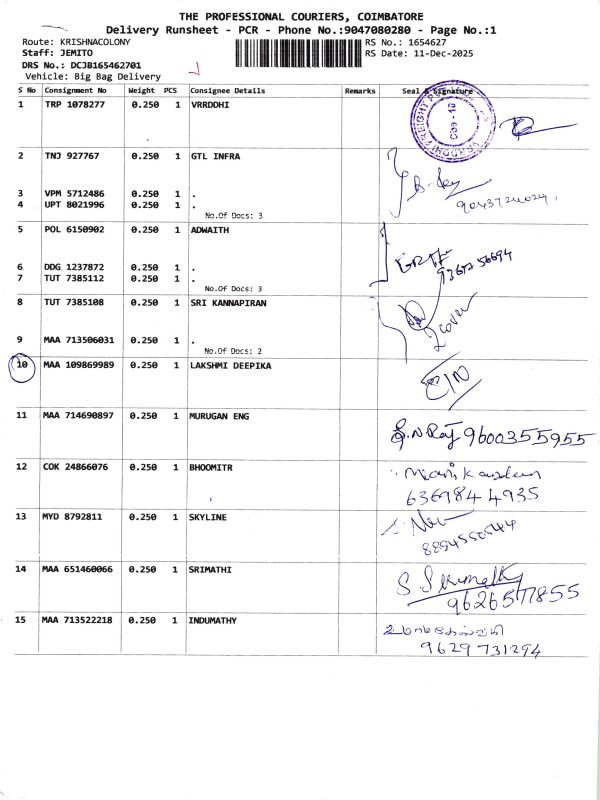 THE PROFESSIONAL COURIERS, COIMBATORE
Delivery Runsheet - PCR - Phone No.:9047080280 - Page No.:1
Route: KRISHNACOLONY RS No.: 1654627
Staff: JEMITO RS Date: 11-Dec-2025
DRS No.: DCJB165462701
Vehicle: Big Bag Delivery
S No Consignment No Weight PCS Consignee Details Remarks Seal & Signature
1 TRP 1078277 0.250 1 VRRDDHI
2 TNJ 927767 0.250 1 GTL INFRA
3 VPM 5712486 0.250 1 .
4 UPT 8021996 0.250 1 .
No.Of Docs: 3
5 POL 6150902 0.250 1 ADWAITH
6 DDG 1237872 0.250 1 .
7 TUT 7385112 0.250 1 .
No.Of Docs: 3
8 TUT 7385108 0.250 1 SRI KANNAPIRAN
2 cover
9 MAA 713506031 0.250 1 .
No.Of Docs: 2
10 MAA 109869989 0.250 1 LAKSHMI DEEPIKA
11 MAA 714690897 0.250 1 MURUGAN ENG 9600355955
12 COK 24866076 0.250 1 BHOOMITR
6369844935
13 MYD 8792811 0.250 1 SKYLINE
14 MAA 651460066 0.250 1 SRIMATHI
9626577855
15 MAA 713522218 0.250 1 INDUMATHY
9629731294